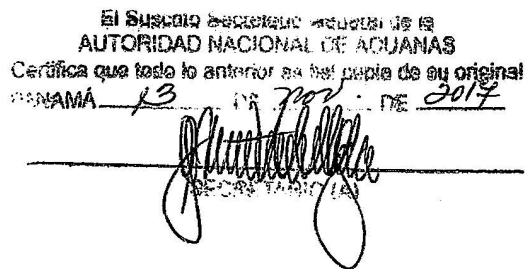 El Suscrito Secretario General de la
AUTORIDAD NACIONAL DE ADUANAS
Certifica que todo lo anterior es fiel copia de su original
PANAMÁ 13 DE nov. DE 2017
SECRETARIO (A)